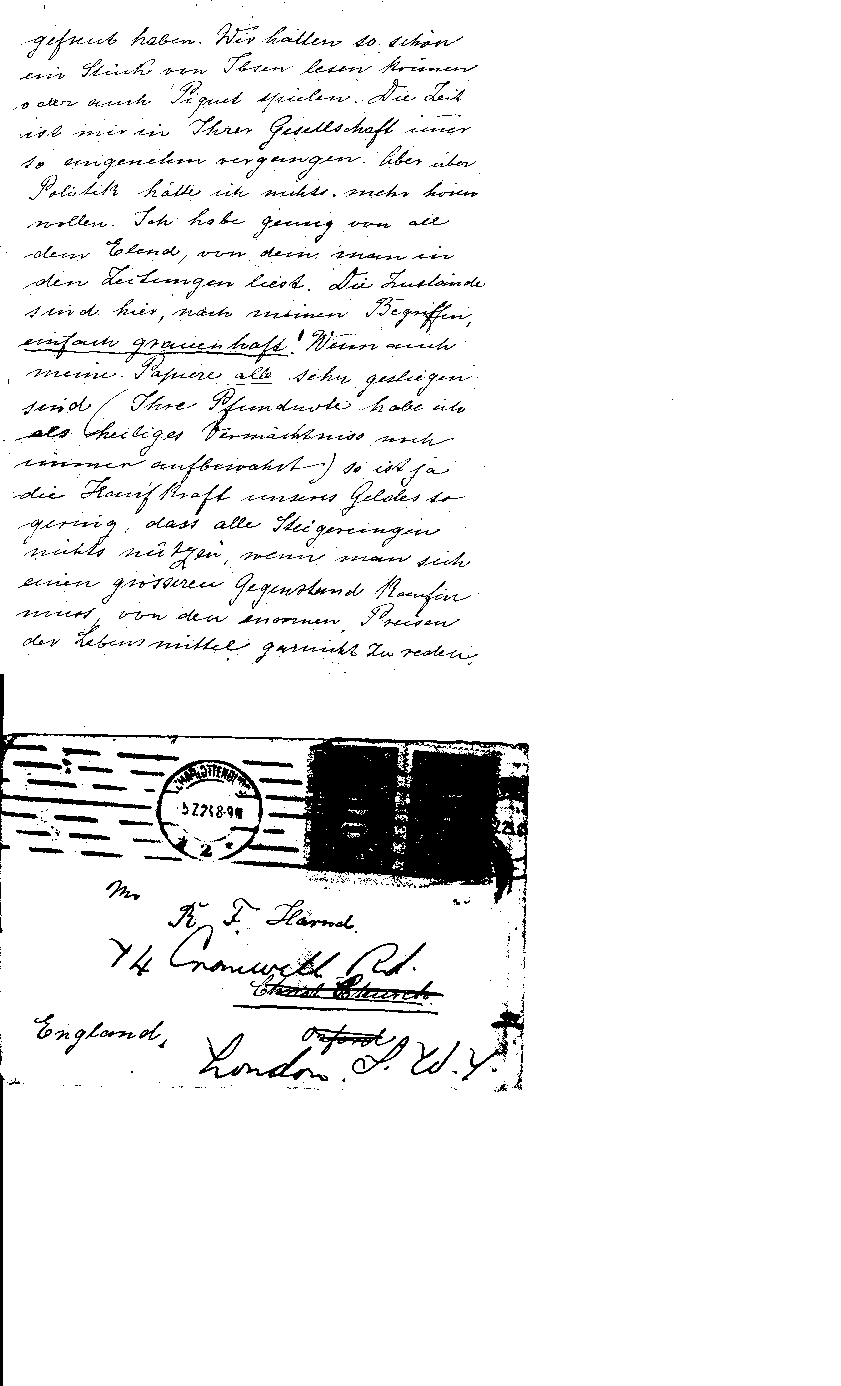 gefreut haben. Wir hätten so schön
ein Stück von Ibsen lesen können
oder auch Piquet spielen. Die Zeit
ist mir in Ihrer Gesellschaft im̅er
so angenehm vergangen. Aber über
Politik hätte ich nichts mehr hören
wollen. Ich habe genug von all
dem Elend, von dem man in
den Zeitungen liest. Die Zustände
sind hier, nach meinen Begriffen,
einfach grauenhaft! Wenn auch
meine Papiere alle sehr gestiegen
sind (Ihre Pfundnote habe ich
als heiliges Vermächtniss noch
immer aufbewahrt) so ist ja
die Kaufkraft unseres Geldes so
gering, dass alle Steigerungen
nichts nützen, wenn man sich
einen grösseren Gegenstand kaufen
muss, von den enormen Preisen
der Lebensmittel garnicht zu reden,
CHARLOTTENBURG
2
Mr
R. F. Harrod
Cromwell Rd.
Christ Church
England,
Oxford
London, S. W. 7.